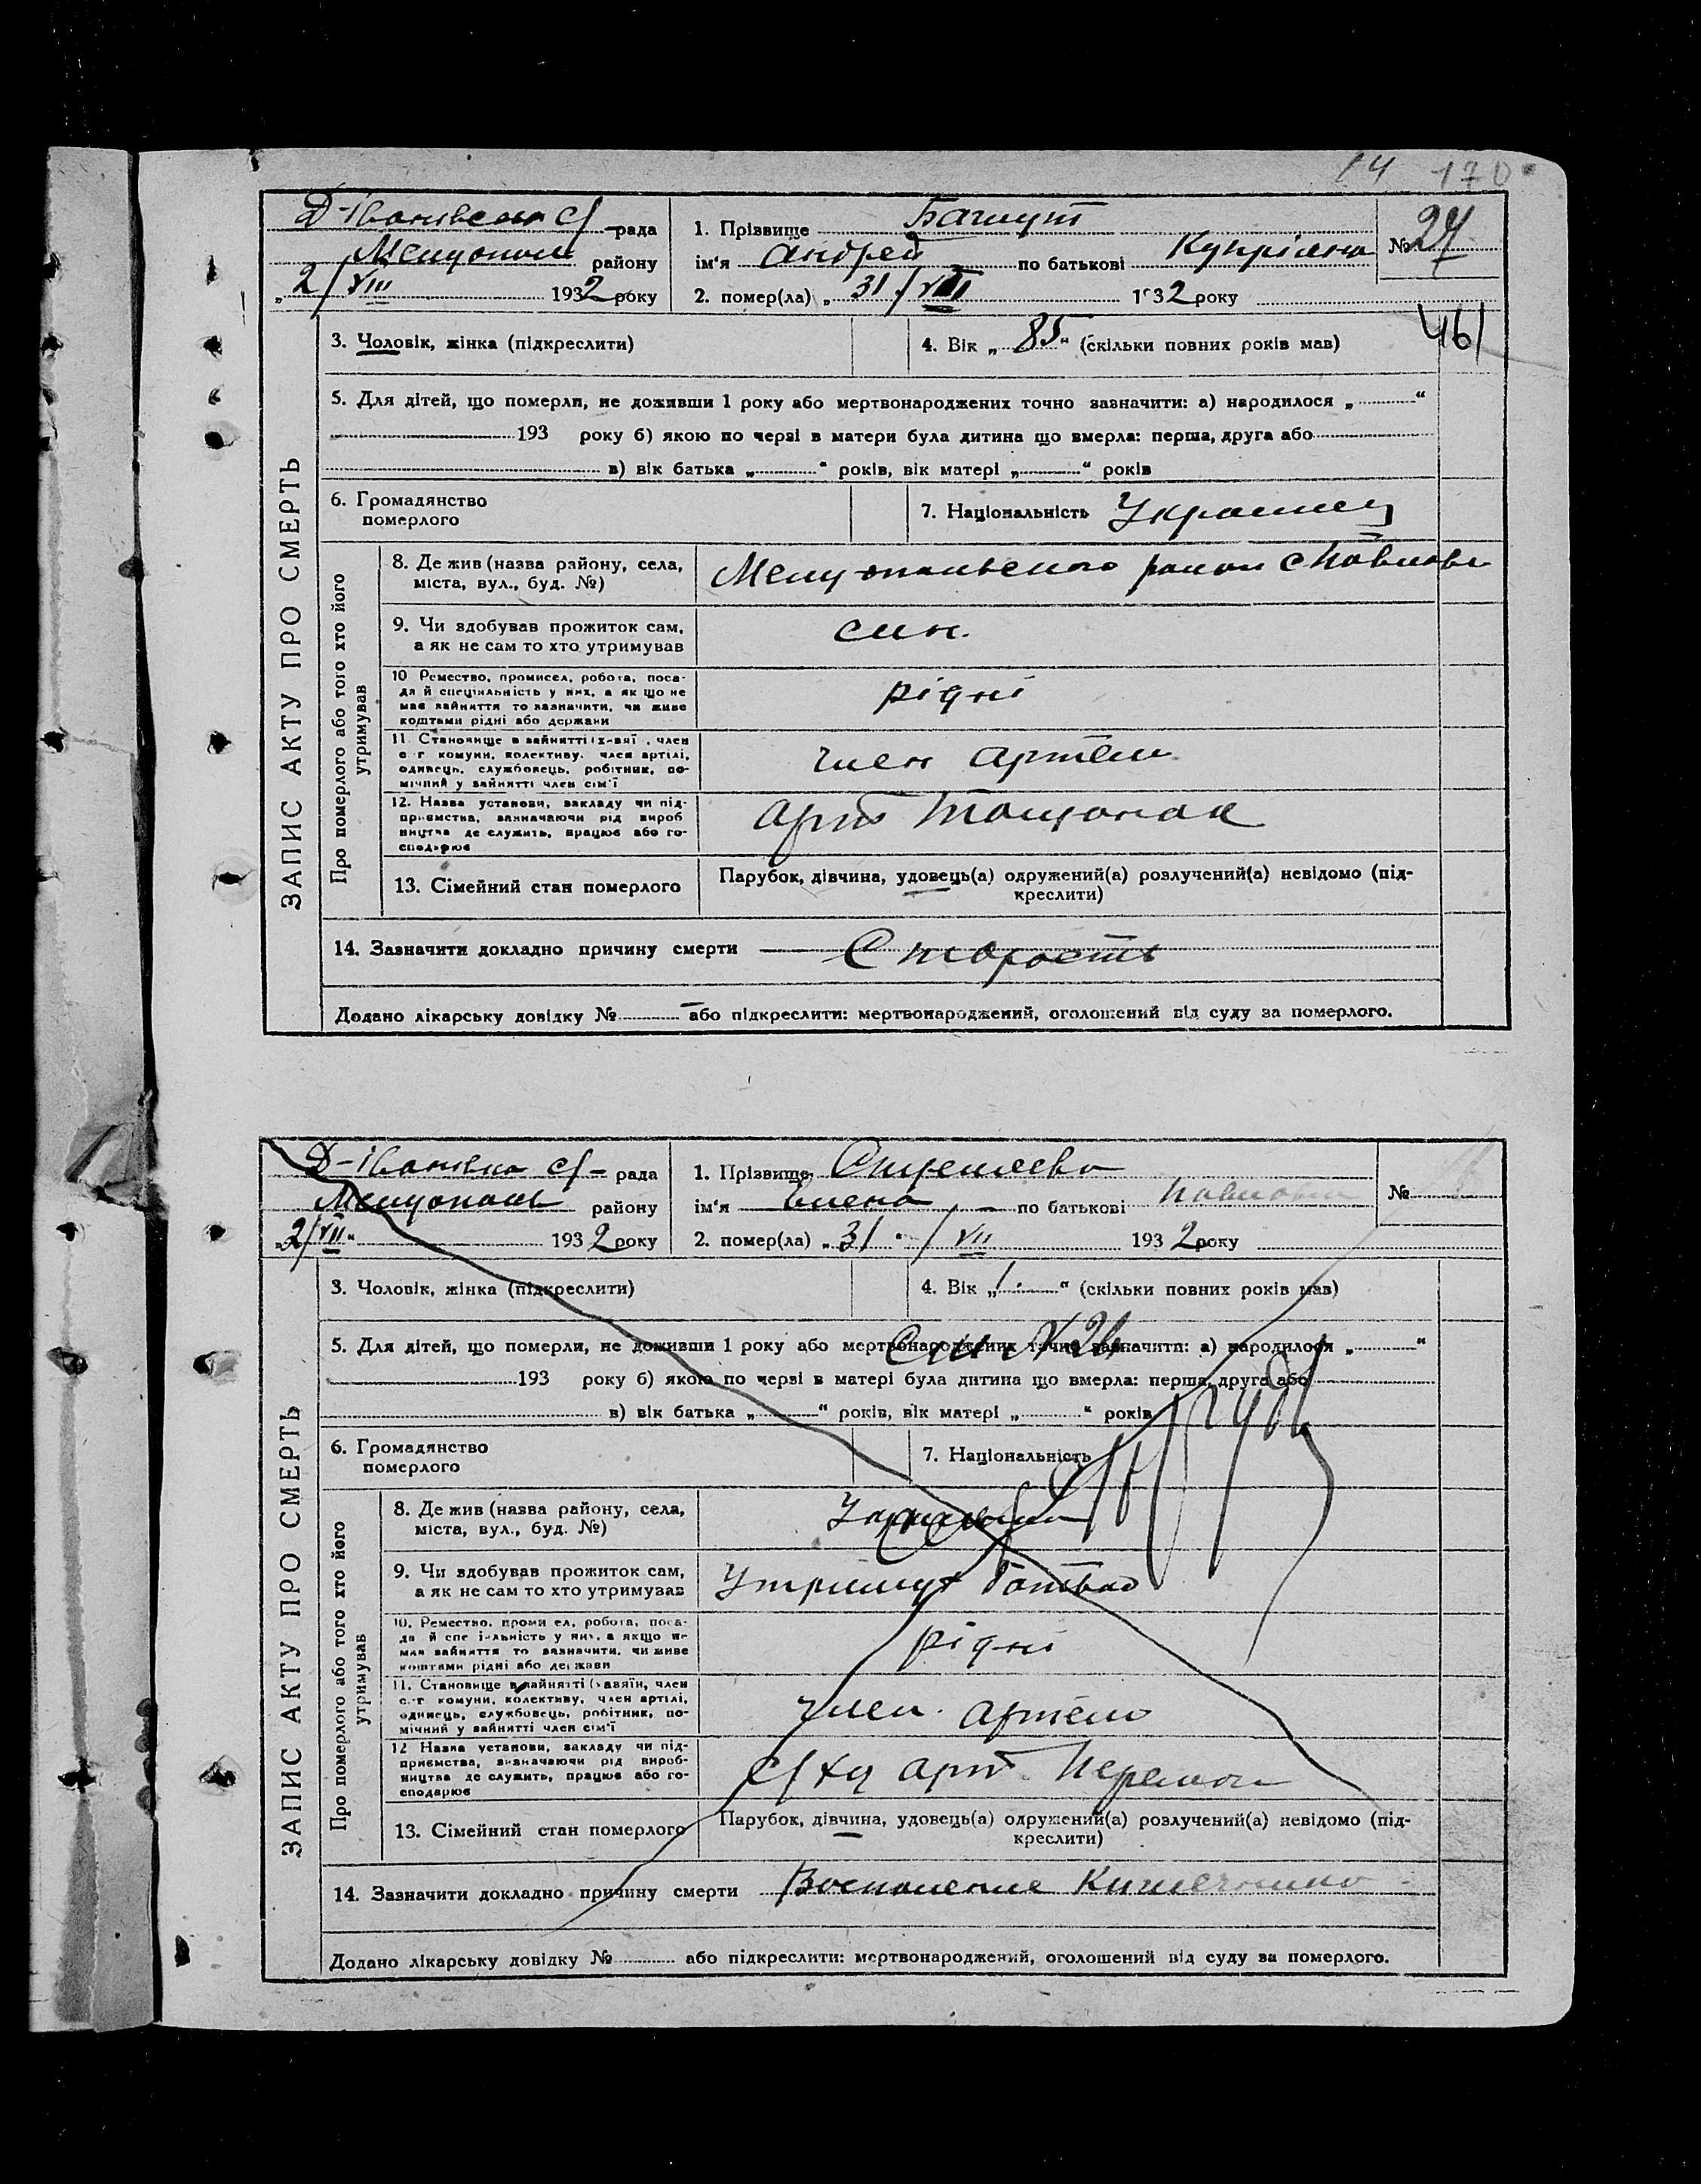 14 170
Д-Івановська с/рада
Мелітополь району
„2/VIII 1932 року
1. Прізвище Бахмут
ім'я Андрей по батькові Купріяно
№ 27
2. помер(ла) „31/VIII 1932 року
461
ЗАПИС АКТУ ПРО СМЕРТЬ
3. Чоловік, жінка (підкреслити)
4. Вік „85“ (скільки повних років мав)
5. Для дітей, що померли, не доживши 1 року або мертвонароджених точно зазначити: а) народилося „ “
193 року б) якою по черзі в матери була дитина що вмерла: перша, друга або
в) вік батька „ “ років, вік матері „ “ років
6. Громадянство
померлого
7. Національність Украинец
Про померлого або того хто його
утримував
8. Де жив (назва району, села,
міста, вул., буд. №)
9. Чи здобував прожиток сам,
а як не сам то хто утримував
син.
10 Ремество, промисел, робота, поса-
да й спеціяльність у них, а як що не
має зайняття то зазначити, чи живе
коштами рідні або держави
рідні
11. Становище в зайнятті (х-зяї , член
с г комуни, колективу, член артілі,
одинець, службовець, робітник, по-
мічний у зайнятті член сім'ї
член артели
12. Назва установи, закладу чи під-
приємства, зазначаючи рід вироб
ництва де служить, працює або го-
сподарює
арт
13. Сімейний стан померлого
Парубок, дівчина, удовець(а) одружений(а) розлучений(а) невідомо (під-
креслити)
14. Зазначити докладно причину смерти Старость
Додано лікарську довідку № – або підкреслити: мертвонароджений, оголошений від суду за померлого.
Д-Івановка с/– рада
Мелітополь району
„2/VII“ 1932 року
1. Прізвище
ім'я Елена – по батькові Павловна
№
2. помер(ла) „31“/VII 1932 року
ЗАПИС АКТУ ПРО СМЕРТЬ
3. Чоловік, жінка (підкреслити)
4. Вік „1“ (скільки повних років мав)
5. Для дітей, що померли, не доживши 1 року або мертвонароджених точно зазначити: а) народилося „ “
193 року б) якою по черзі в матері була дитина що вмерла: перша, друга або
в) вік батька „ “ років, вік матері „ “ років
6. Громадянство
померлого
7. Національність
Про померлого або того хто його
утримував
8. Де жив (назва району, села,
міста, вул., буд. №)
9. Чи здобував прожиток сам,
а як не сам то хто утримував
батько
10. Ремество, проми ел, робота, поса-
да й спе і-льність у них, а якщо не
має зайняття то зазначити, чи живе
коштами рідні або держави
рідні
11. Становище в зайнятті (хазяїн, член
с.-г комуни, колективу, член артілі,
одинець, службовець, робітник, по-
мічний у зайнятті член сім'ї
член. артели
12 Назва установи, закладу чи під-
приємства, зазначаючи рід вироб-
ництва де служить, працює або го-
сподарює
арт
13. Сімейний стан померлого
Парубок, дівчина, удовець(а) одружений(а) розлучений(а) невідомо (під-
креслити)
14. Зазначити докладно причину смерти Воспаление Кишечника
Додано лікарську довідку № або підкреслити: мертвонароджений, оголошений від суду за померлого.